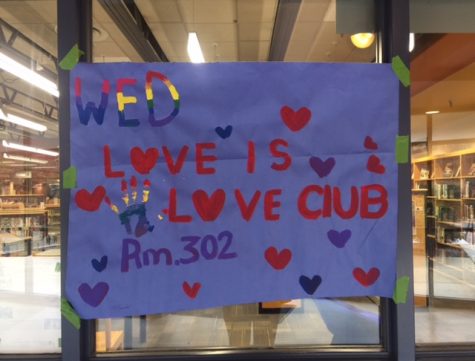 WED
LOVE IS
LOVE CLUB
Rm.302